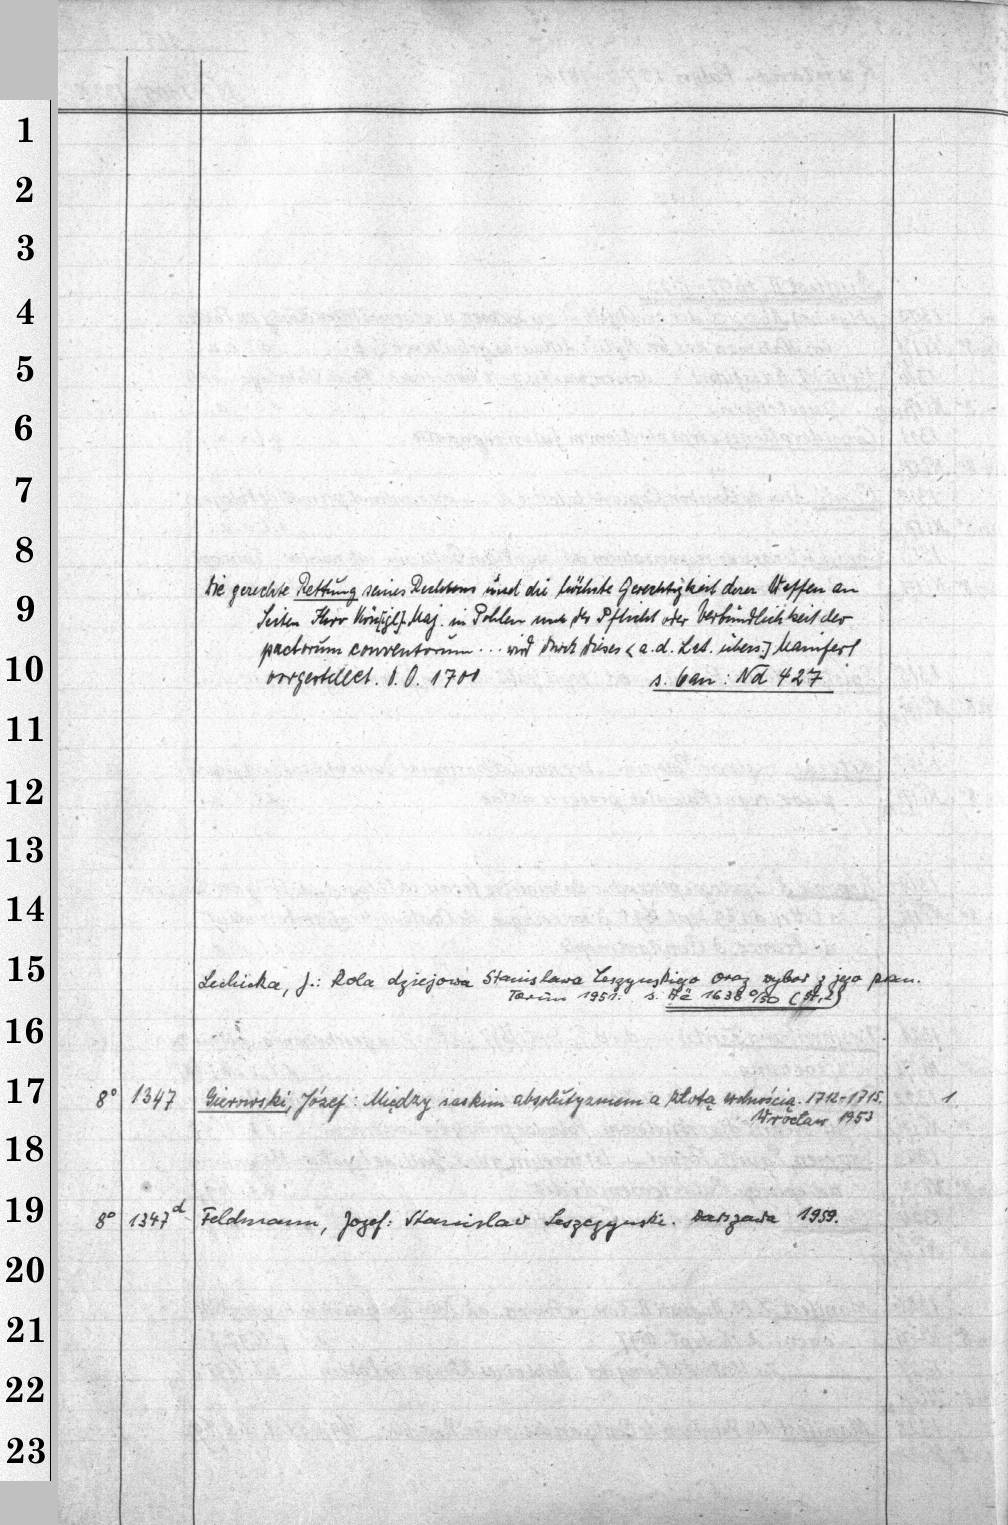 1
2
3
4
5
6
7
8
Die gerechte Rettung seines Rechtens und die höchste Gerechtigkeit derer Waffen an
9
Seiten Ihro Kön[igl]. Maj. in Pohlen und der Pflicht oder Verbündlichkeit der
pactorum conventorum ... wird durch dieses < a. d. Lat. übers.] Manifest
10
vorgestellet. O. O. 1701 s. ban: Nd 427
11
12
13
14
15
Lechicka, J.: Rola dziejowa Stanisława Leszczyńskiego oraz wybor z jego pism.
Toruń 1951. s. Aë 1638 %50 (
16
17
8° 1347 Gierowski, Józef: Między saskim absolutyzmem a złotą wolnością. 1712-1715. 1
Wrocław 1953
18
19
8° 1347d Feldmann, Jozef: Stanislav Leszczynski. Warszawa 1959.
20
21
22
23